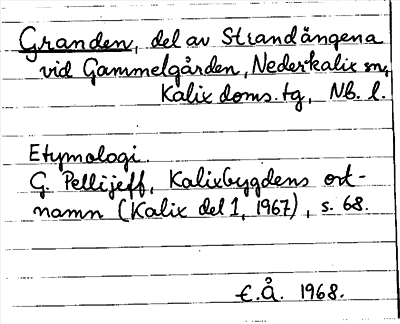 Granden, del av Strandängena
vid Gammelgården, Nederkalix sn,
Kalix doms. tg, Nb. l.
Etymologi.
G. Pellijeff, Kalixbygdens ort-
namn (Kalix del 1, 1967), s. 68.
E.Å. 1968.